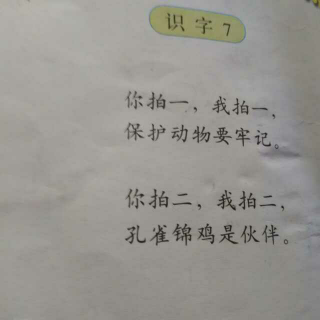 识字7
你拍一，我拍一，
保护动物要牢记。
你拍二，我拍二，
孔雀锦鸡是伙伴。